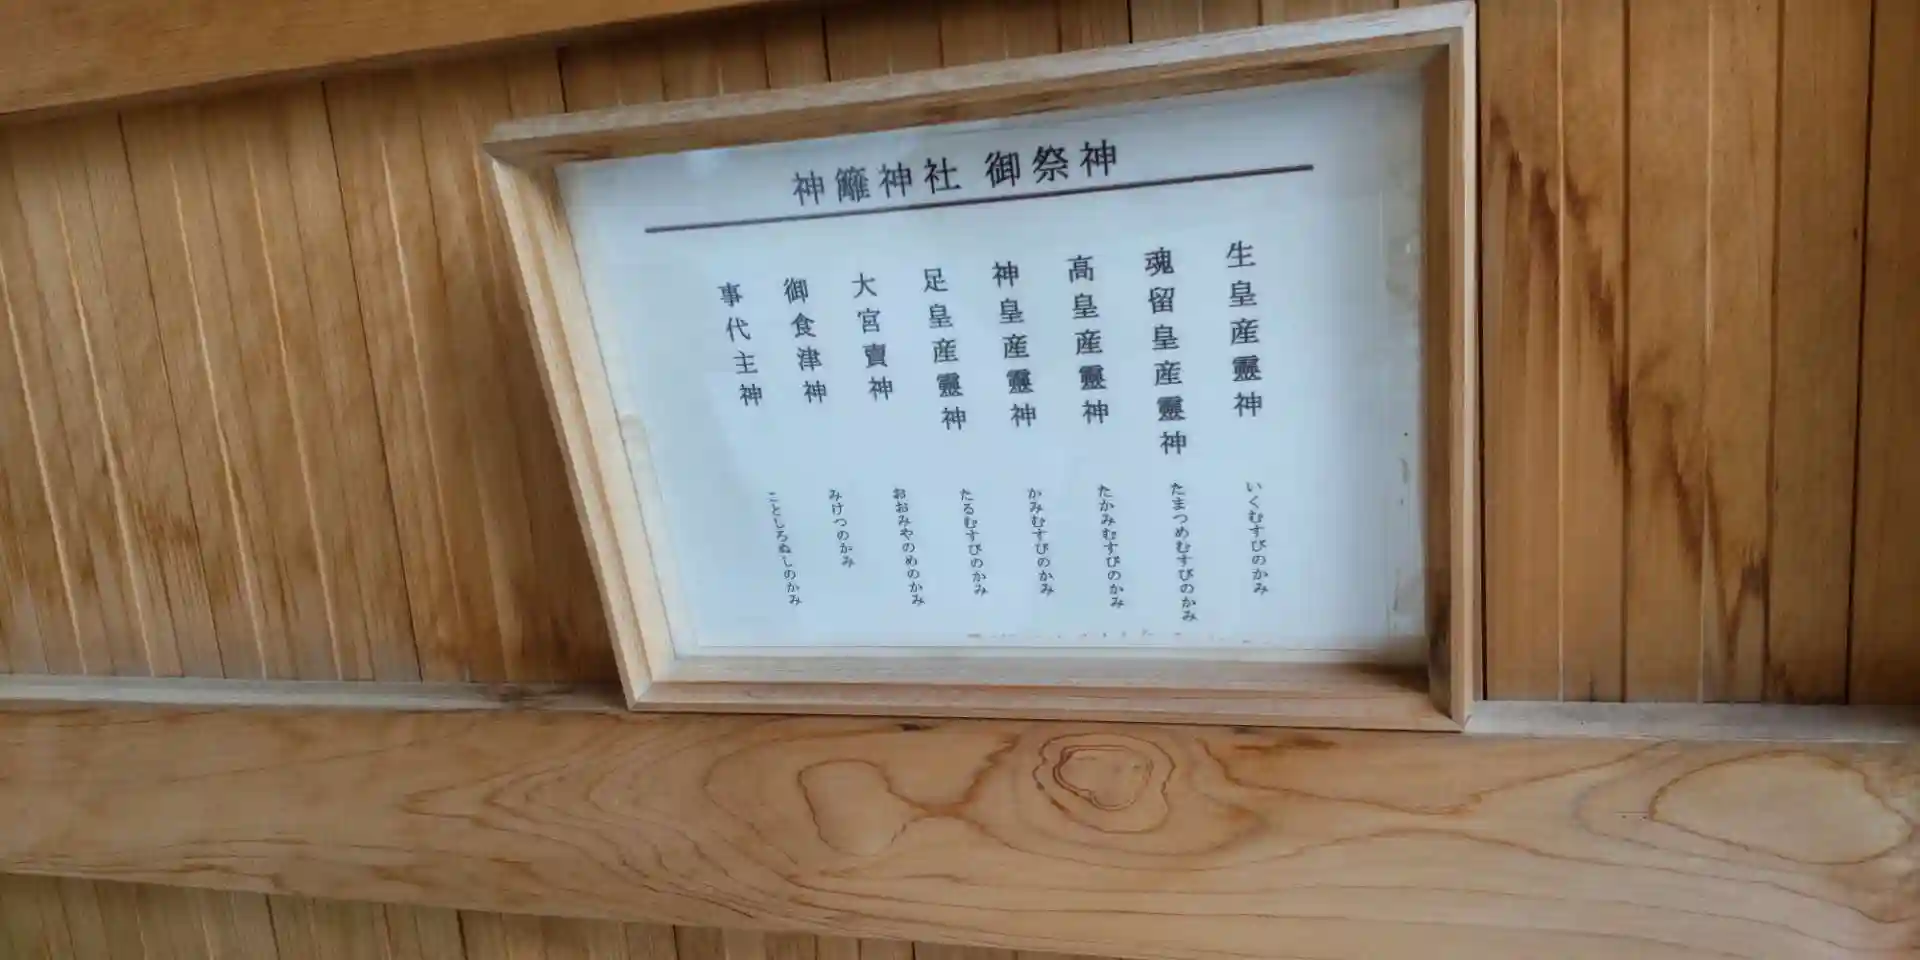 神籬神社 御祭神
生皇産靈神
いくむすびのかみ
魂留皇産靈神
たまつめむすびのかみ
高皇産靈神
たかみむすびのかみ
神皇産靈神
かみむすびのかみ
足皇産靈神
たるむすびのかみ
大宮賣神
おおみやのめのかみ
御食津神
みけつのかみ
事代主神
ことしろぬしのかみ